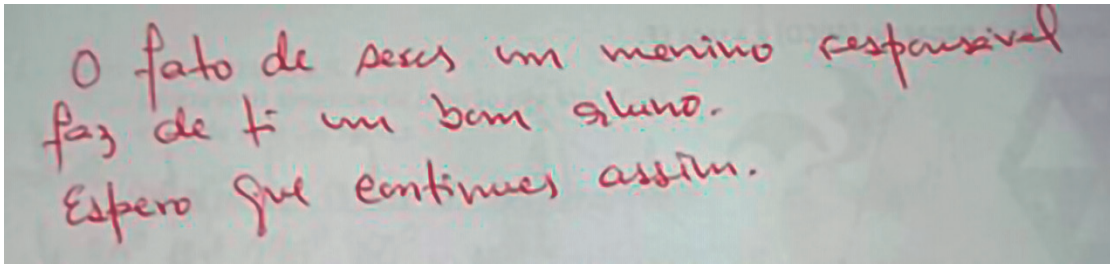 O fato de seres um menino responsável
faz de ti um bom aluno.
Espero que continues assim.